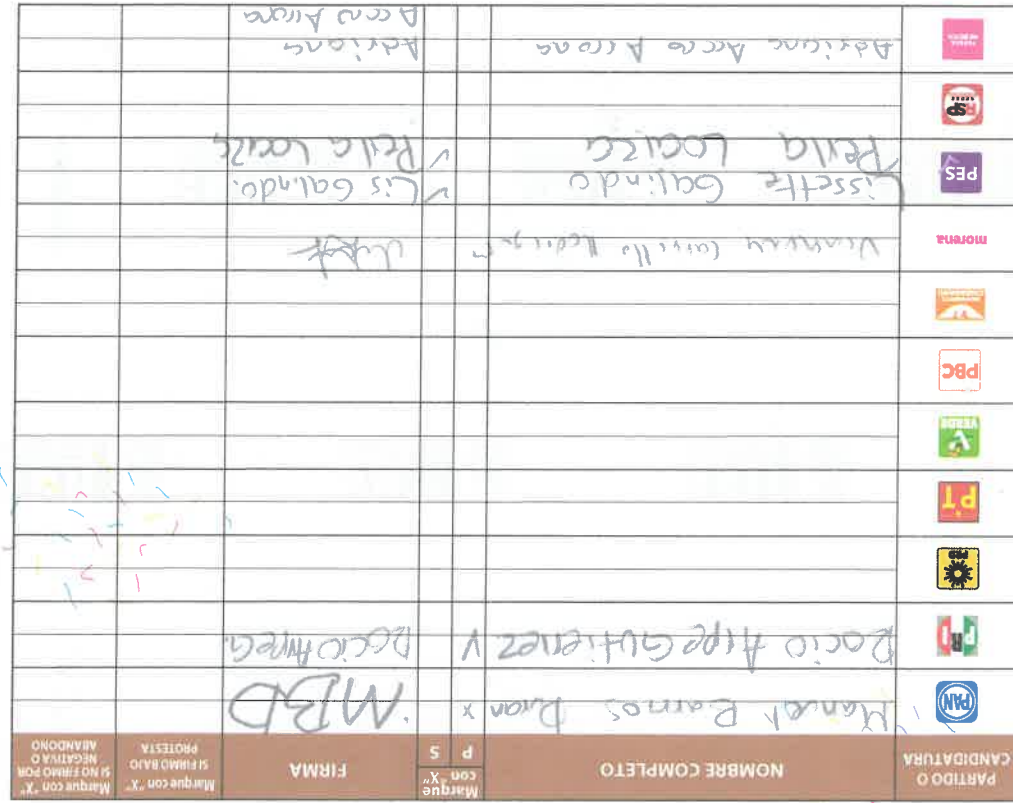 PARTIDO O CANDIDATURA
NOMBRE COMPLETO
Marque con "X"
P S
FIRMA
Marque con "X" SI FIRMO BAJO PROTESTA
Marque con "X" SI NO FIRMO POR NEGATIVA O ABANDONO
PAN
Manuel Barros Duran x MBD
PRI
Rocio Arpe Gutierrez V Rocio Arpe G.
PRD
PT
VERDE
PBC
MOVIMIENTO CIUDADANO
morena
Carrillo
PES
Lissette Galindo ✓ Lis Galindo.
Perla Loaiza ✓ Perla Loaiza
RSP
FUERZA MEXICO
Adriana Arcos Arcona Adriana